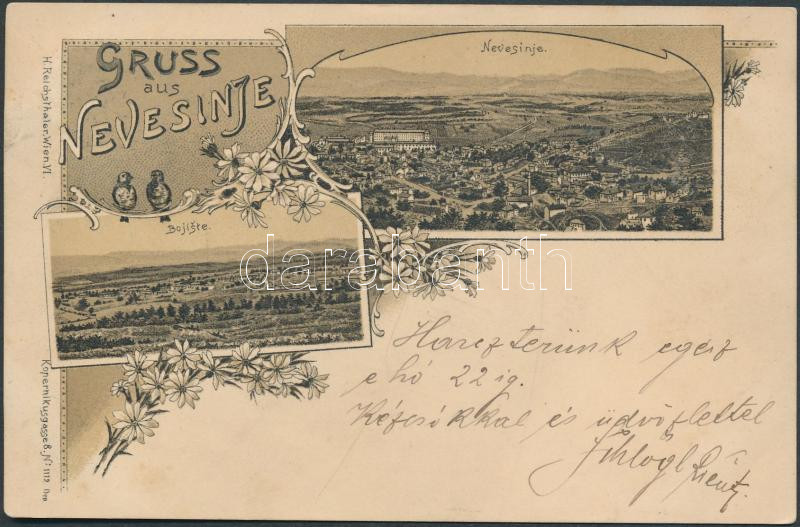 GRUSS
aus
NEVESINJE
Nevesinje.
Bojište.
H. Reichsthaler, Wien, VI.
Kopernikusgasse 8. № 1112
darabanth
Harczterünk egész
e hó 22 ig.
Kézcsókkal és üdvözlettel
Schlögl